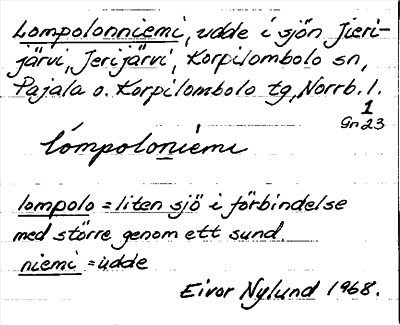 Lompolonniemi, udde i sjön Jieri-
järvi, Jerijärvi, Korpilombolo sn,
Pajala o. Korpilombolo tg, Norrb. l.
1
Gn 23
lómpoloníemi
lompolo = liten sjö i förbindelse
med större genom ett sund.
niemi = udde
Eivor Nylund 1968.